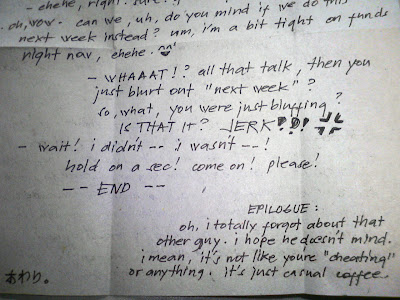 - ehehe, right. sure. i
oh, wow. can we, uh, do you mind if we do this
next week instead? um, i'm a bit tight on funds
right now, ehehe.
- WHAAAT!? all that talk, then you
just blurt out "next week"?
so, what, you were just bluffing?
IS THAT IT? JERK!?!
- wait! i didn't -- i wasn't --!
hold on a sec! come on! please!
-- END --
EPILOGUE:
oh, i totally forgot about that
other guy. i hope he doesn't mind.
i mean, it's not like you're "cheating"
or anything. it's just casual coffee.
おわり。